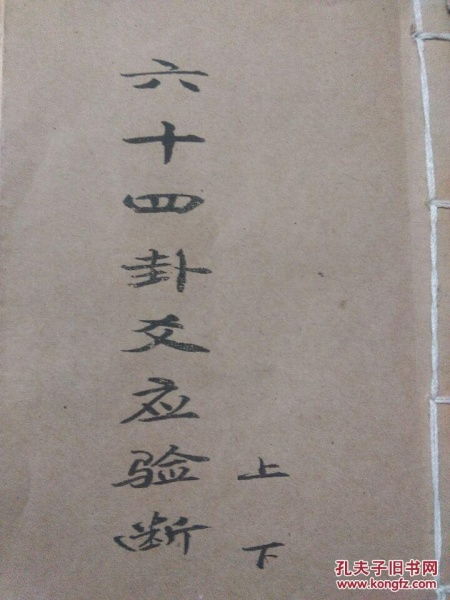 六十四卦爻应验断
上
下
孔夫子旧书网
www.kongfz.com